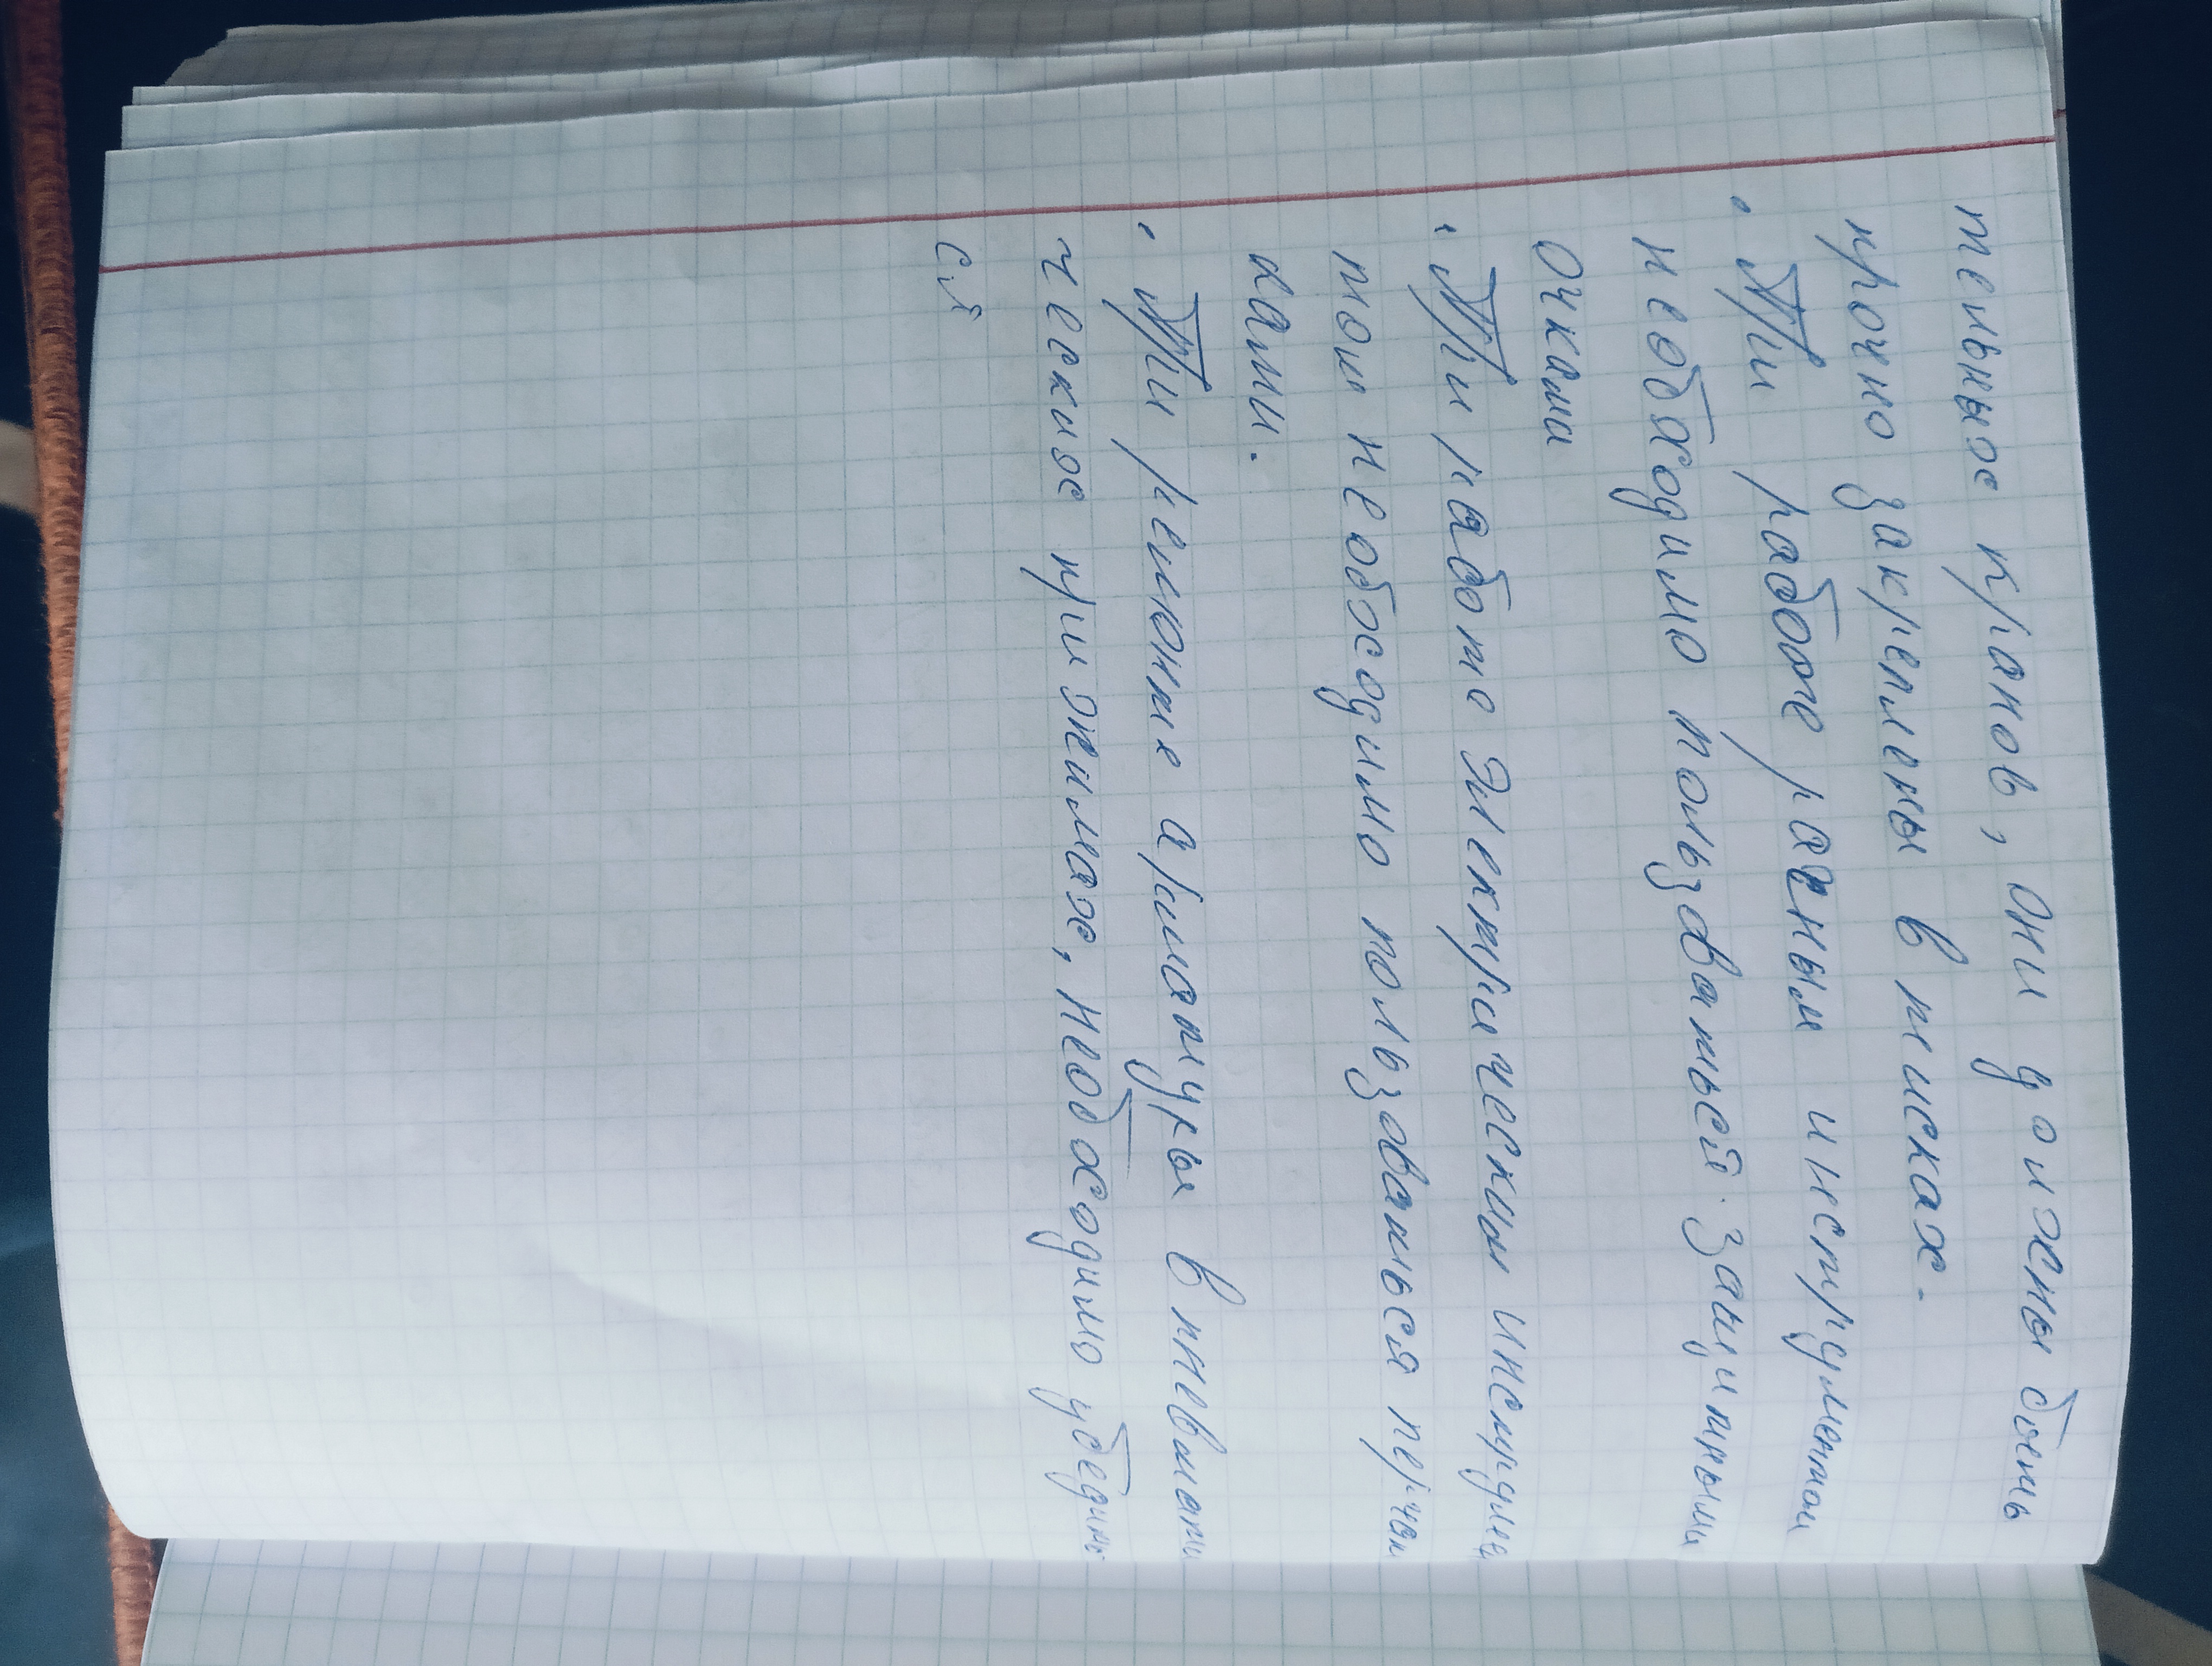 тельное кранов, они должны быть
прочно закреплены в тисках.
• При работе рачным инструментом
необходимо пользоваться защитными
очками
• При работе электрическим инструмен
том необходимо пользоваться перчат
ками.
• При ремонте арматуры в пневмати
ческих прижимах, необходимо убедить
ся